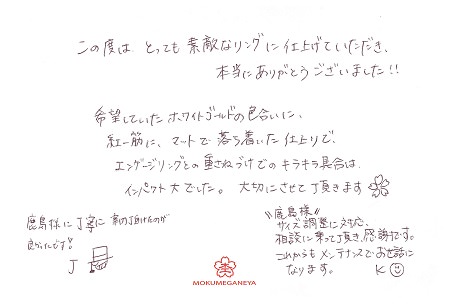 この度は とっても 素敵なリングに仕上げていただき、
本当にありがとうございました!!
希望していたホワイトゴールドの色合いに、
紅一筋に、マットで落ち着いた仕上りで、
エンゲージリングとの重ねづけでのキラキラ具合は、
インパクト大でした。大切にさせて頂きます
鹿島様に丁寧に
良かったです!
J
"鹿島様"
サイズ調整に対応、
相談に乗って頂き、感謝です。
これからもメンテナンスでお世話に
なります。 K
MOKUMEGANEYA